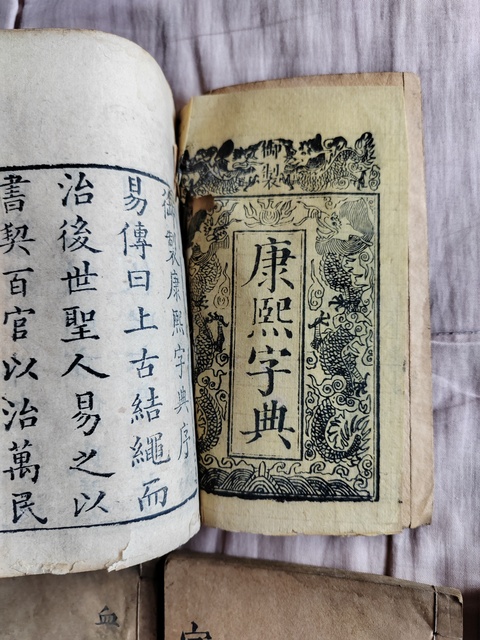 御製
康熙字典
御製康熙字典序
易傳曰上古結繩而
治後世聖人易之以
書契百官以治萬民
血